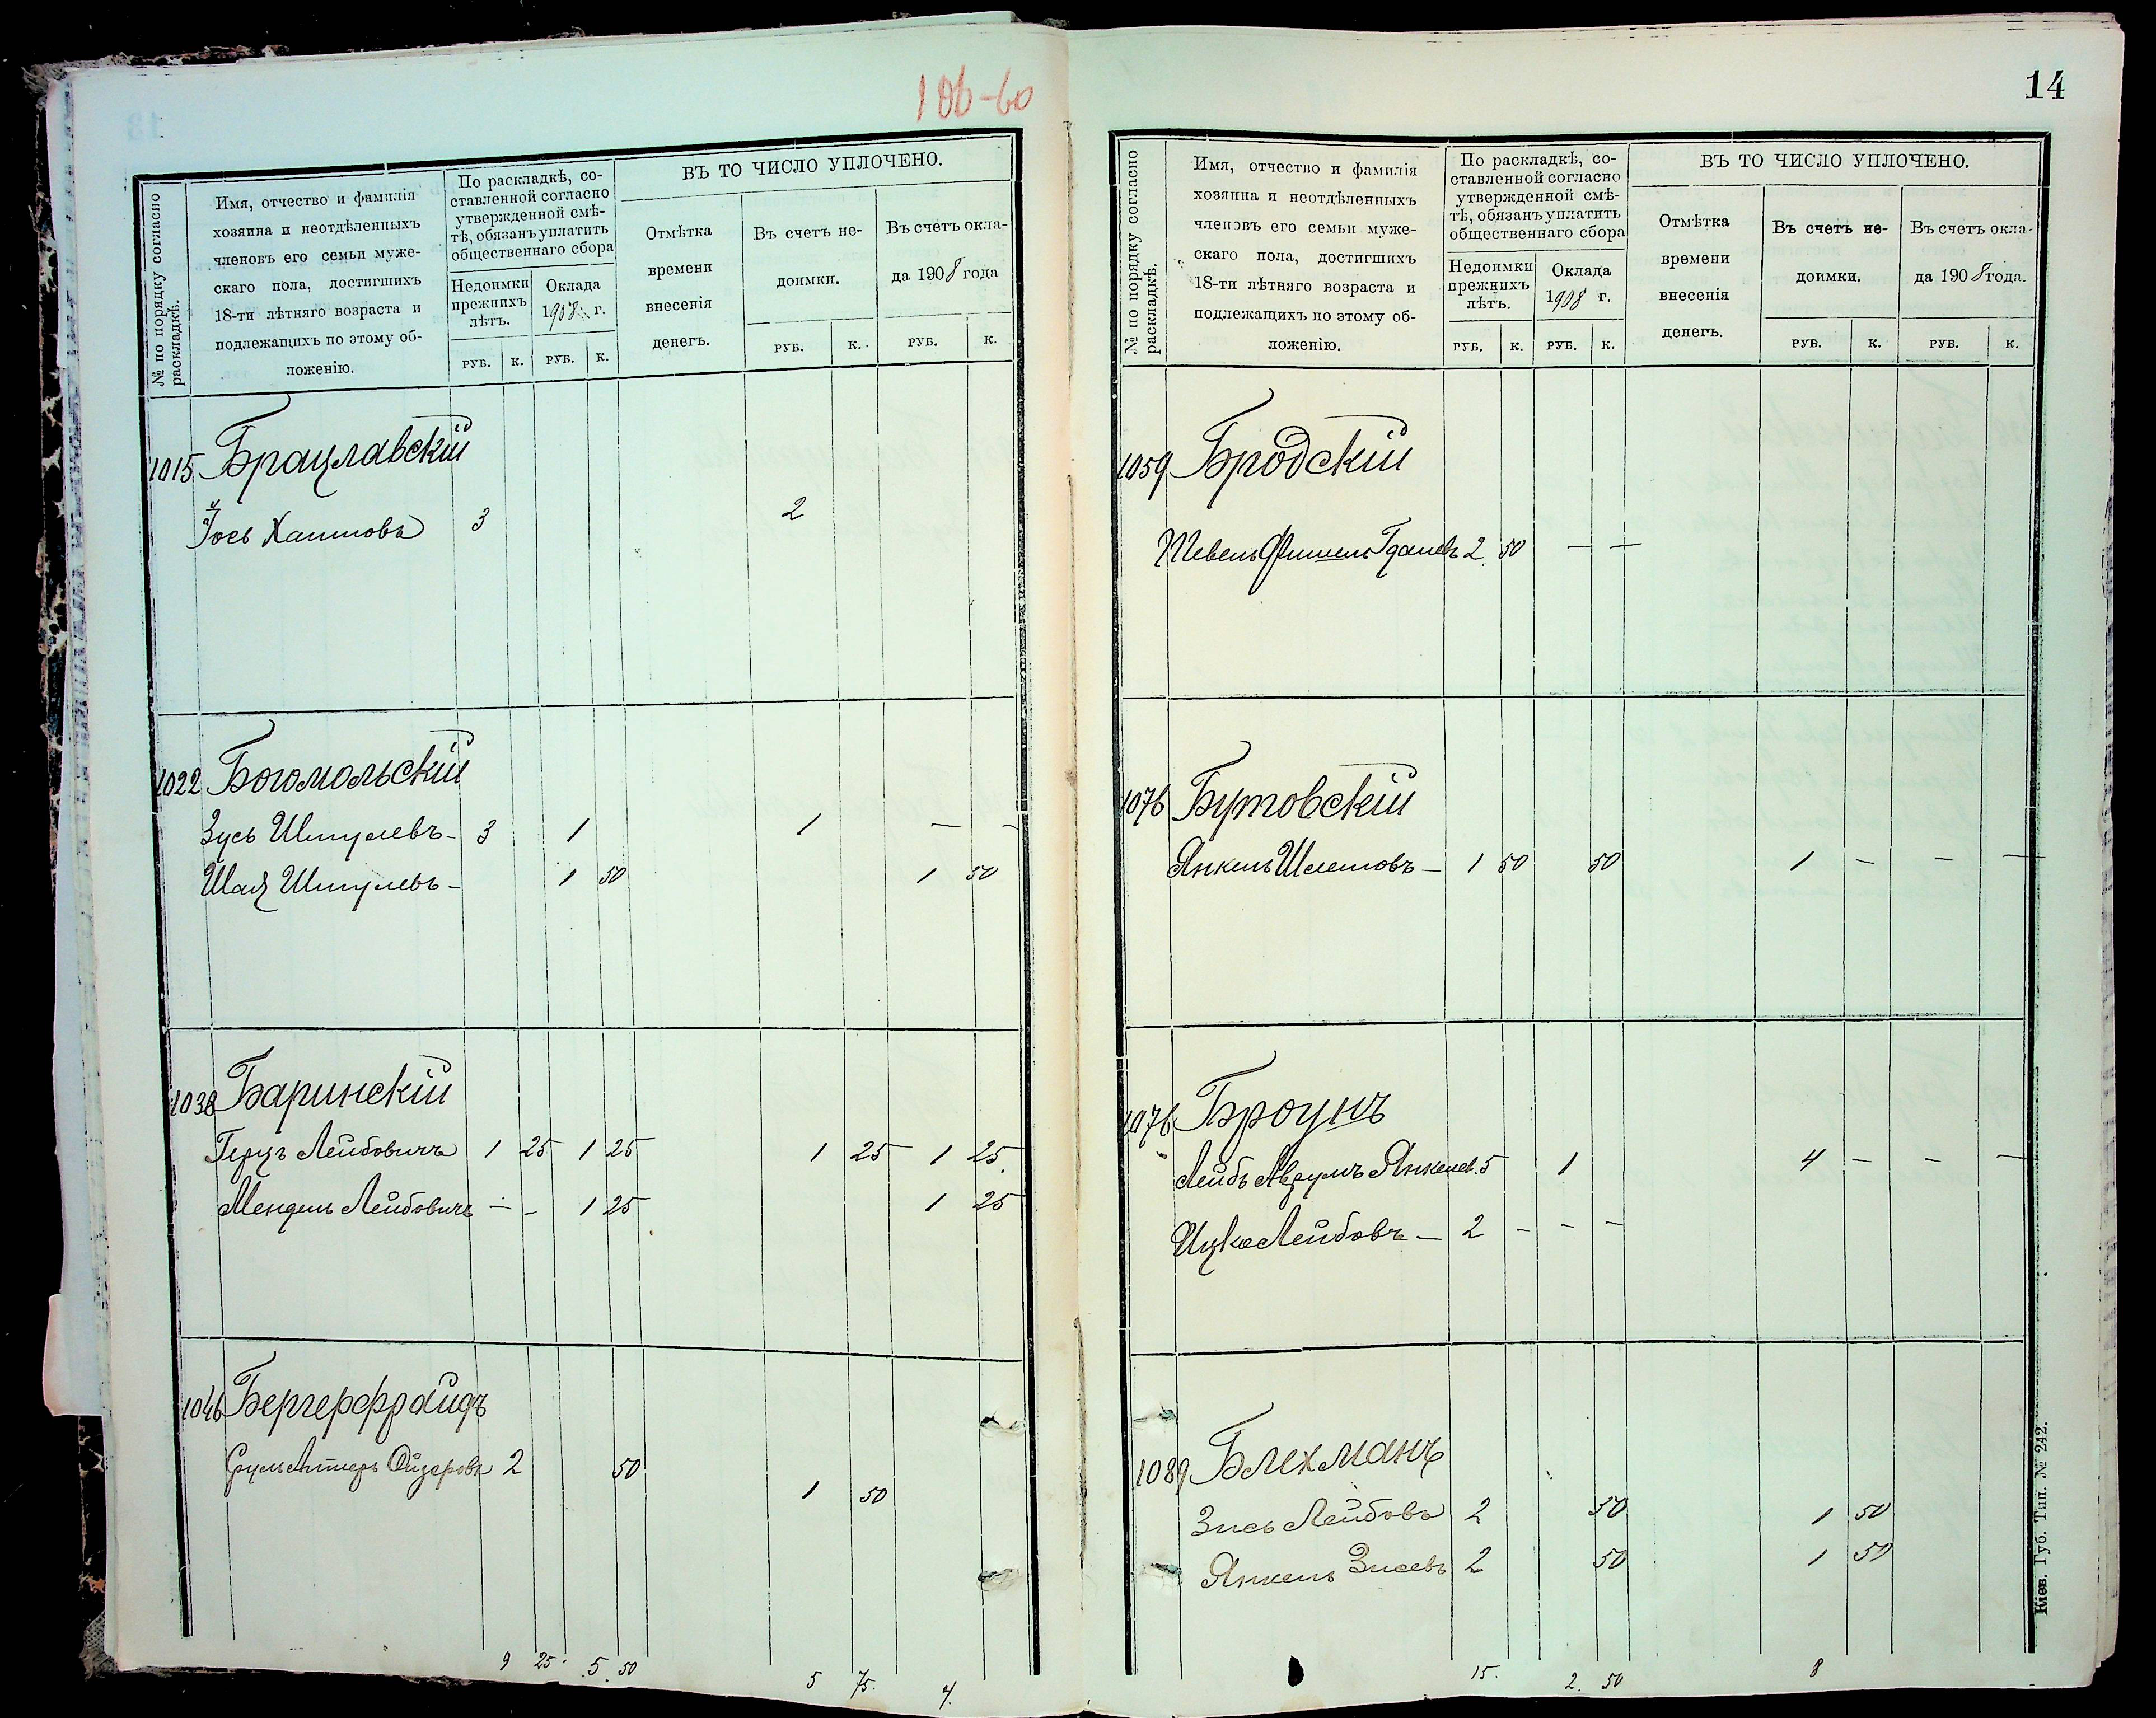 106-60
№ по порядку согласно
раскладкѣ.
Имя, отчество и фамилія
хозяина и неотдѣленныхъ
членовъ его семьи муже-
скаго пола, достигшихъ
18-ти лѣтняго возраста и
подлежащихъ по этому об-
ложенію.
По раскладкѣ, со-
ставленной согласно
утвержденной смѣ-
тѣ, обязанъ уплатить
общественнаго сбора
Недоимки
прежнихъ
лѣтъ.
Оклада
1908 г.
ВЪ ТО ЧИСЛО УПЛОЧЕНО.
Отмѣтка
времени
внесенія
денегъ.
Въ счетъ не-
доимки.
Въ счетъ окла-
да 1908 года
РУБ. К. РУБ. К. РУБ. К. РУБ. К.
1015 Брацлавскій
Іось Хаимовъ 3 2
1022 Богомольскій
Зусь Шмулевъ - 3 1 1 — —
Шая Шмулевъ - 1 50 1 50
1038 Баринскій
Герцъ Лейбовичъ 1 25 1 25 1 25 1 25
Мендель Лейбовичъ - - 1 25 1 25
1046 Бергерфрайдъ
Сруль Оизеровъ 2 50 1 50
9 25 5 50 5 75 4
14
№ по порядку согласно
раскладкѣ.
Имя, отчество и фамилія
хозяина и неотдѣленныхъ
членовъ его семьи муже-
скаго пола, достигшихъ
18-ти лѣтняго возраста и
подлежащихъ по этому об-
ложенію.
По раскладкѣ, со-
ставленной согласно
утвержденной смѣ-
тѣ, обязанъ уплатить
общественнаго сбора
Недоимки
прежнихъ
лѣтъ.
Оклада
1908 г.
ВЪ ТО ЧИСЛО УПЛОЧЕНО.
Отмѣтка
времени
внесенія
денегъ.
Въ счетъ не-
доимки.
Въ счетъ окла-
да 1908 года.
РУБ. К. РУБ. К. РУБ. К. РУБ. К.
1059 Бродскій
Шевель Фишель 2 50 — —
1076 Бутовскій
Янкель Шлемовъ — 1 50 50 1 — — —
1076 Броунъ
Лейбъ Аврумъ Янкелев. 5 1 4 — — —
Ицко Лейбовъ — 2 — — —
1089 Блехманъ
Зись Лейбовъ 2 50 1 50
Янкель Зисевъ 2 50 1 50
15. 2. 50 8
Кіев. Губ. Тип. № 242.